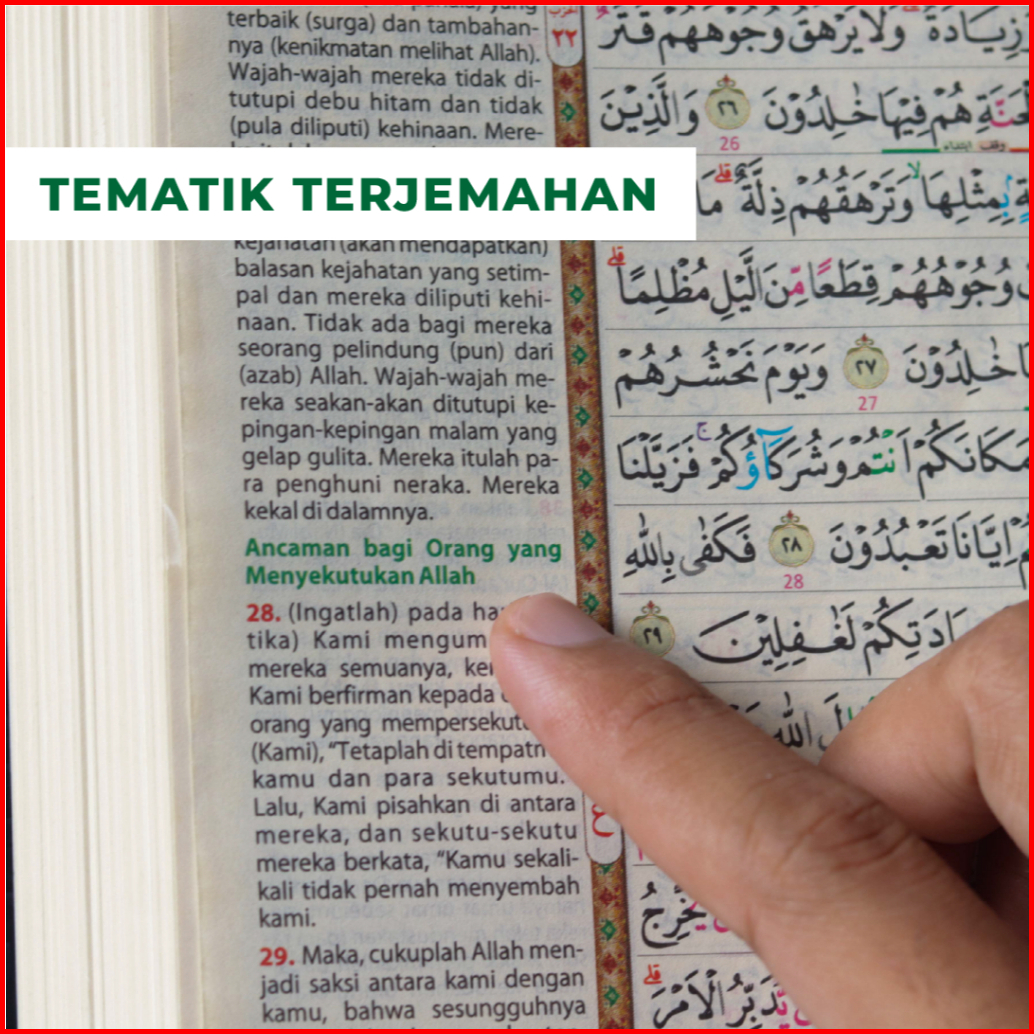 terbaik (surga) dan tambahan-
nya (kenikmatan melihat Allah).
Wajah-wajah mereka tidak di-
tutupi debu hitam dan tidak
(pula diliputi) kehinaan. Mere-
TEMATIK TERJEMAHAN
kejahatan (akan mendapatkan)
balasan kejahatan yang setim-
pal dan mereka diliputi kehi-
naan. Tidak ada bagi mereka
seorang pelindung (pun) dari
(azab) Allah. Wajah-wajah me-
reka seakan-akan ditutupi ke-
pingan-kepingan malam yang
gelap gulita. Mereka itulah pa-
ra penghuni neraka. Mereka
kekal di dalamnya.
Ancaman bagi Orang yang
Menyekutukan Allah
28. (Ingatlah) pada
tika) Kami
mereka semuanya,
Kami berfirman kepada
orang yang
(Kami), “Tetaplah di
kamu dan para sekutumu.
Lalu, Kami pisahkan di antara
mereka, dan sekutu-sekutu
mereka berkata, “Kamu sekali-
kali tidak pernah menyembah
kami.
29. Maka, cukuplah Allah men-
jadi saksi antara kami dengan
kamu, bahwa sesungguhnya
٢٢
وَلَا يَرْهَقُ وُجُوْهَهُمْ قَتَرٌ
هُمْ فِيْهَا خٰلِدُوْنَ ٢٦ وَالَّذِيْنَ
26
بِمِثْلِهَا وَتَرْهَقُهُمْ ذِلَّةٌ ۗمَا
وُجُوْهُهُمْ قِطَعًا مِّنَ الَّيْلِ مُظْلِمًا ۗ
خٰلِدُوْنَ ٢٧ وَيَوْمَ نَحْشُرُهُمْ
27
مَكَانَكُمْ اَنْتُمْ وَشُرَكَاۤؤُكُمْ ۚ فَزَيَّلْنَا
اِيَّانَا تَعْبُدُوْنَ ٢٨ فَكَفٰى بِاللّٰهِ
28
لَغٰفِلِيْنَ ٢٩
اللّٰهِ
ع
يُّدَبِّرُ الْاَمْرَ ۗ